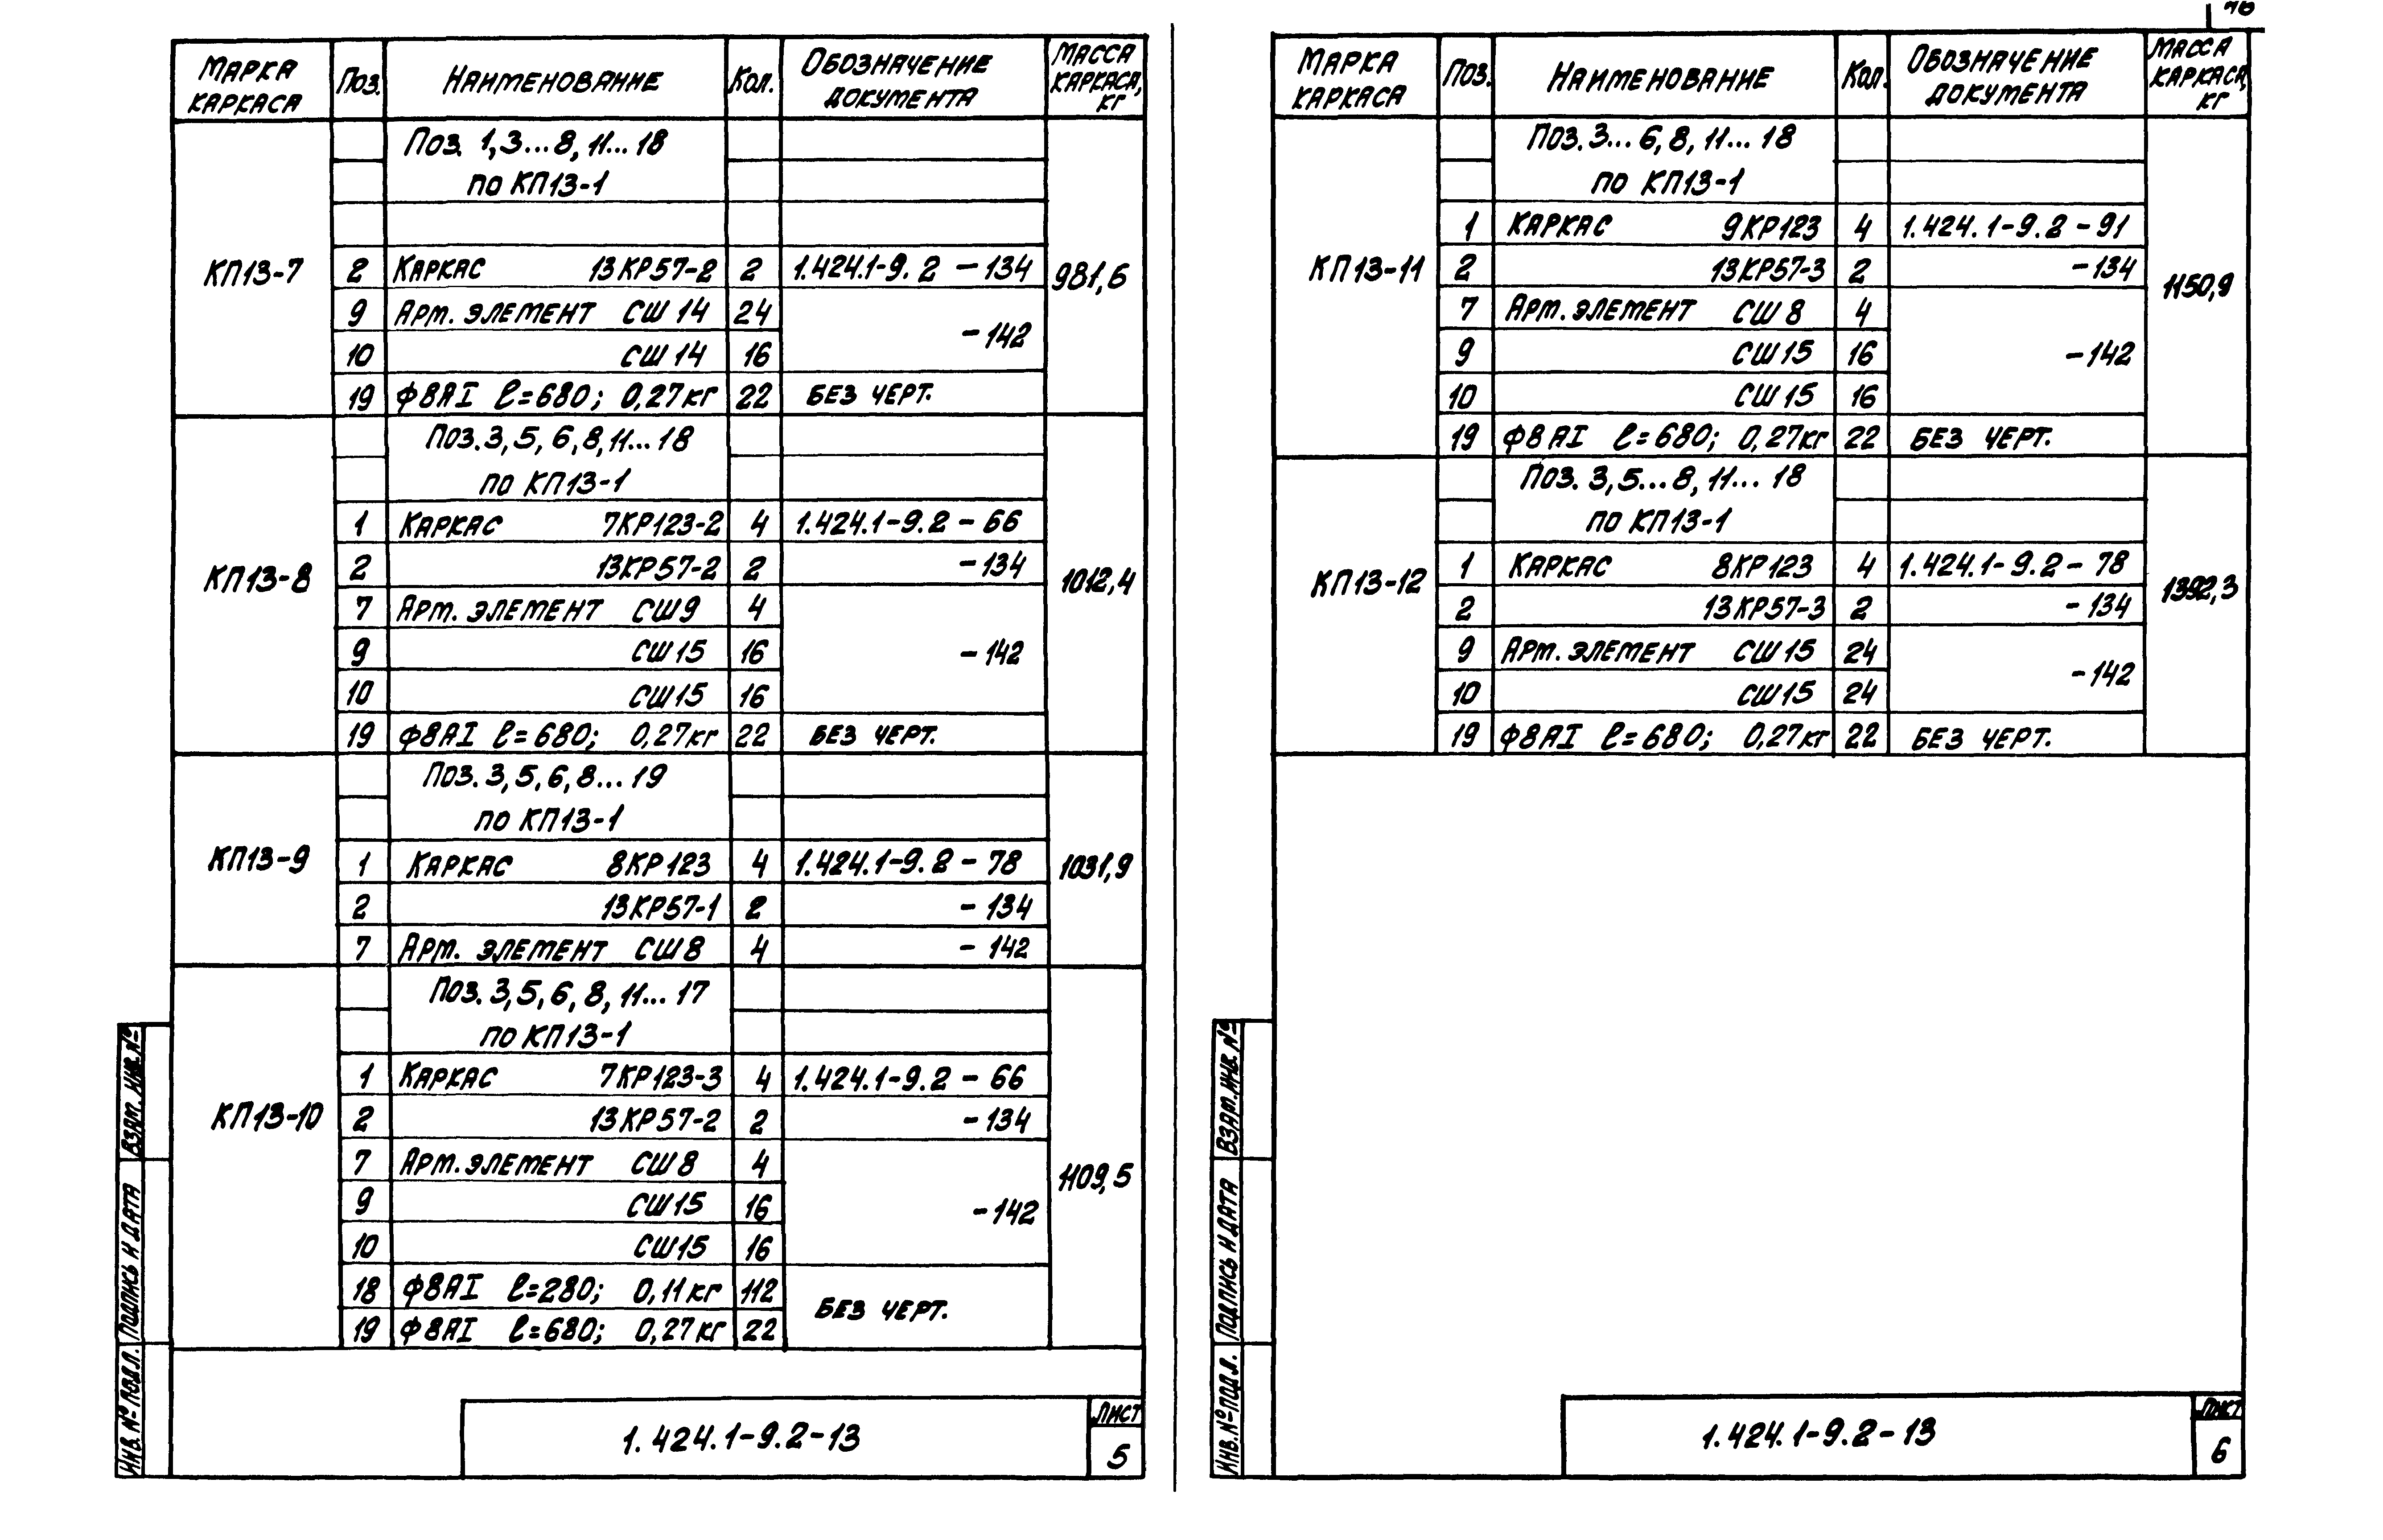 МАРКА КАРКАСА | ПОЗ. | НАИМЕНОВАНИЕ | КОЛ. | ОБОЗНАЧЕНИЕ ДОКУМЕНТА | МАССА КАРКАСА, КГ
КП13-7 | 981,6
ПОЗ. 1,3...8, 11...18
ПО КП13-1
2 | КАРКАС 13КР57-2 | 2 | 1.424.1-9.2 -134
9 | АРМ. ЭЛЕМЕНТ СШ 14 | 24 | -142
10 | СШ 14 | 16
19 | Ф8АI ℓ=680; 0,27кг | 22 | БЕЗ ЧЕРТ.
КП13-8 | 1012,4
ПОЗ. 3, 5, 6, 8, 11...18
ПО КП13-1
1 | КАРКАС 7КР123-2 | 4 | 1.424.1-9.2 - 66
2 | 13КР57-2 | 2 | -134
7 | АРМ. ЭЛЕМЕНТ СШ9 | 4 | -142
9 | СШ15 | 16
10 | СШ15 | 16
19 | Ф8АI ℓ=680; 0,27кг | 22 | БЕЗ ЧЕРТ.
КП13-9 | 1031,9
ПОЗ. 3, 5, 6, 8...19
ПО КП13-1
1 | КАРКАС 8КР123 | 4 | 1.424.1-9.2 - 78
2 | 13КР57-1 | 2 | -134
7 | АРМ. ЭЛЕМЕНТ СШ8 | 4 | -142
КП13-10 | 1109,5
ПОЗ. 3, 5, 6, 8, 11...17
ПО КП13-1
1 | КАРКАС 7КР123-3 | 4 | 1.424.1-9.2 - 66
2 | 13КР57-2 | 2 | -134
7 | АРМ. ЭЛЕМЕНТ СШ8 | 4 | -142
9 | СШ15 | 16
10 | СШ15 | 16
18 | Ф8АI ℓ=280; 0,11кг | 112 | БЕЗ ЧЕРТ.
19 | Ф8АI ℓ=680; 0,27кг | 22
ВЗАМ. ИНВ. №
ПОДПИСЬ И ДАТА
ИНВ. № ПОДЛ.
1.424.1-9.2-13
ЛИСТ
5
МАРКА КАРКАСА | ПОЗ. | НАИМЕНОВАНИЕ | КОЛ. | ОБОЗНАЧЕНИЕ ДОКУМЕНТА | МАССА КАРКАСА, КГ
КП13-11 | 1150,9
ПОЗ. 3...6, 8, 11...18
ПО КП13-1
1 | КАРКАС 9КР123 | 4 | 1.424.1-9.2 -91
2 | 13КР57-3 | 2 | -134
7 | АРМ. ЭЛЕМЕНТ СШ8 | 4 | -142
9 | СШ15 | 16
10 | СШ15 | 16
19 | Ф8АI ℓ=680; 0,27кг | 22 | БЕЗ ЧЕРТ.
КП13-12 | 1392,3
ПОЗ. 3, 5...8, 11...18
ПО КП13-1
1 | КАРКАС 8КР123 | 4 | 1.424.1-9.2 - 78
2 | 13КР57-3 | 2 | -134
9 | АРМ. ЭЛЕМЕНТ СШ15 | 24 | -142
10 | СШ15 | 24
19 | Ф8АI ℓ=680; 0,27кг | 22 | БЕЗ ЧЕРТ.
ВЗАМ. ИНВ. №
ПОДПИСЬ И ДАТА
ИНВ. № ПОДЛ.
1.424.1-9.2-13
ЛИСТ
6